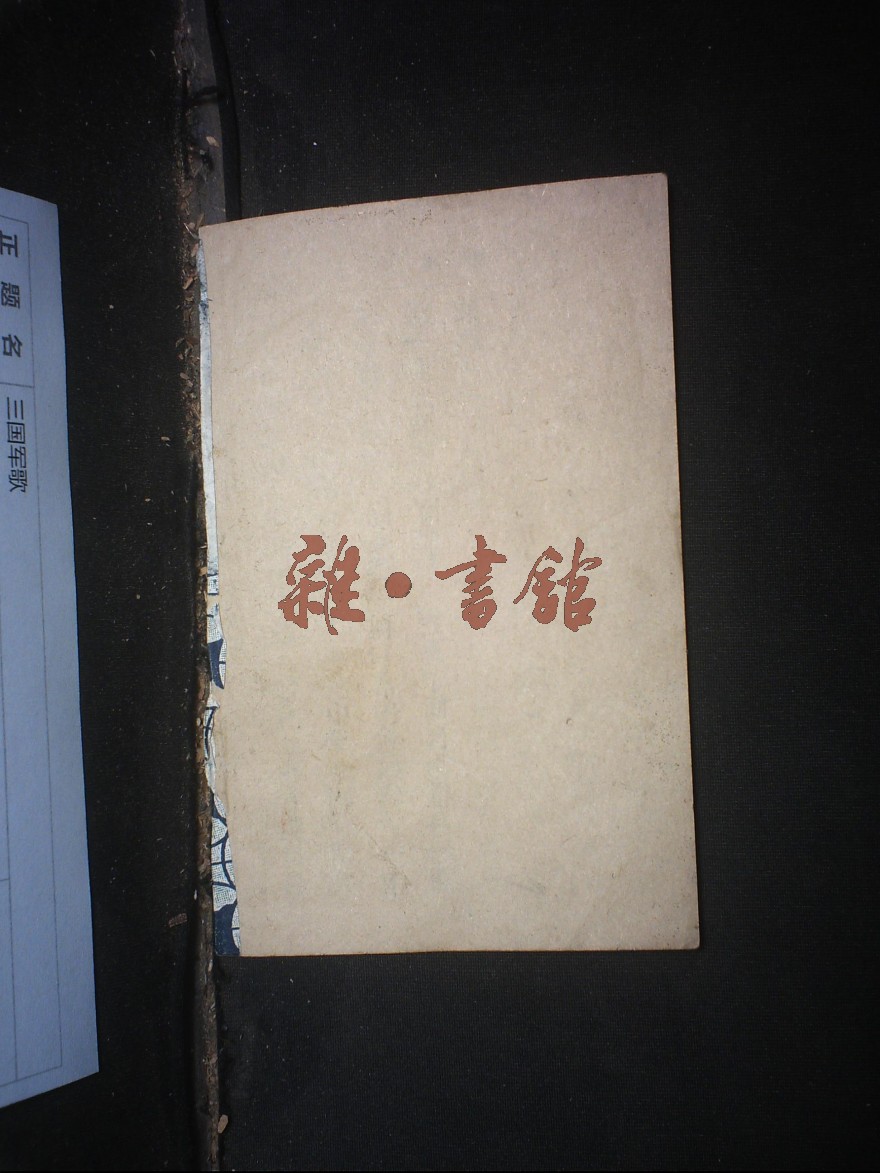 正题名
三国军歌
雜·書館